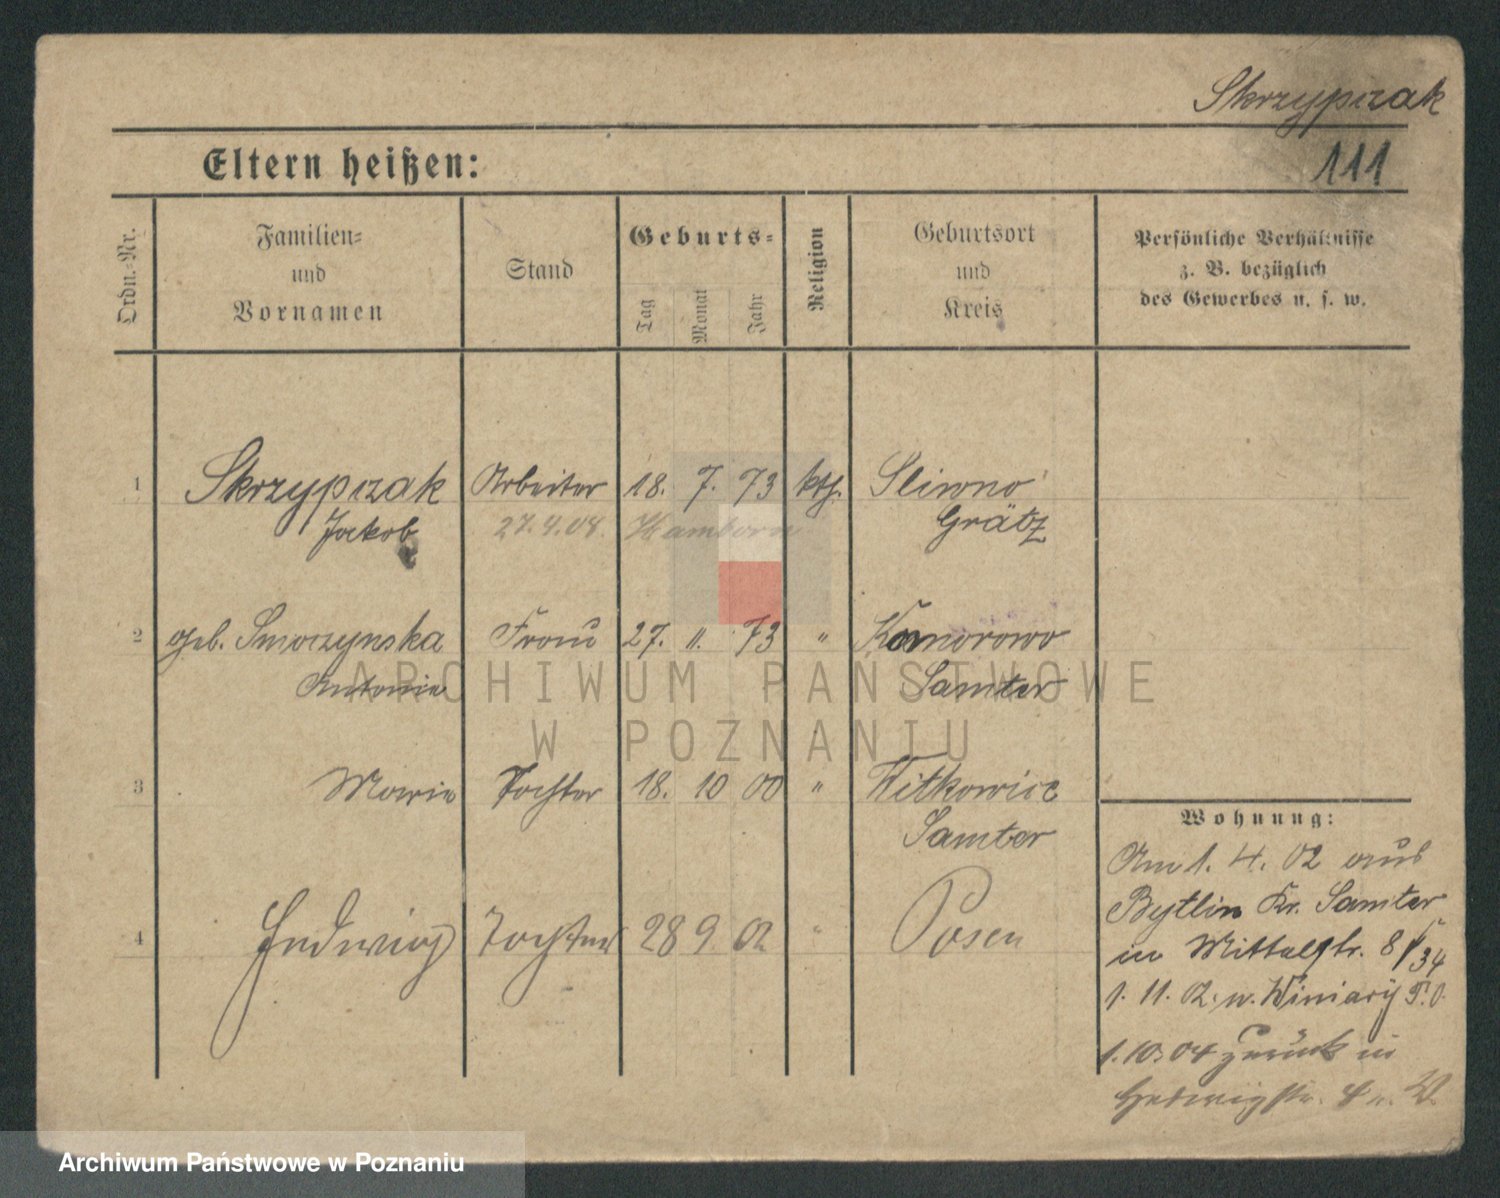 Skrzypczak
111
Eltern heißen:
Ordn.-Nr.
Familien-
und
Vornamen
Stand
Geburts-
Tag
Monat
Jahr
Religion
Geburtsort
und
Kreis
Persönliche Verhältnisse
z. B. bezüglich
des Gewerbes u. s. w.
1 Skrzypczak Arbeiter 18. 7. 73 kth. Sliwno
Jakob 27.4.08. Hamborn Grätz
2 geb. Smoczynska Frau 27. 11. 73 " Komorowo
Antonie Samter
ARCHIWUM PAŃSTWOWE
W POZNANIU
3 Marie Tochter 18. 10 00 " Witkowice
Samter
4 Hedwig Tochter 28 9 02 " Posen
Wohnung:
Am 1. 4. 02 aus
Bytlin Kr. Samter
in Mittelstr. 8/34
1. 11. 02. n. Winiary P. O.
1.10.04 zurück in
Hedwigstr.
Archiwum Państwowe w Poznaniu